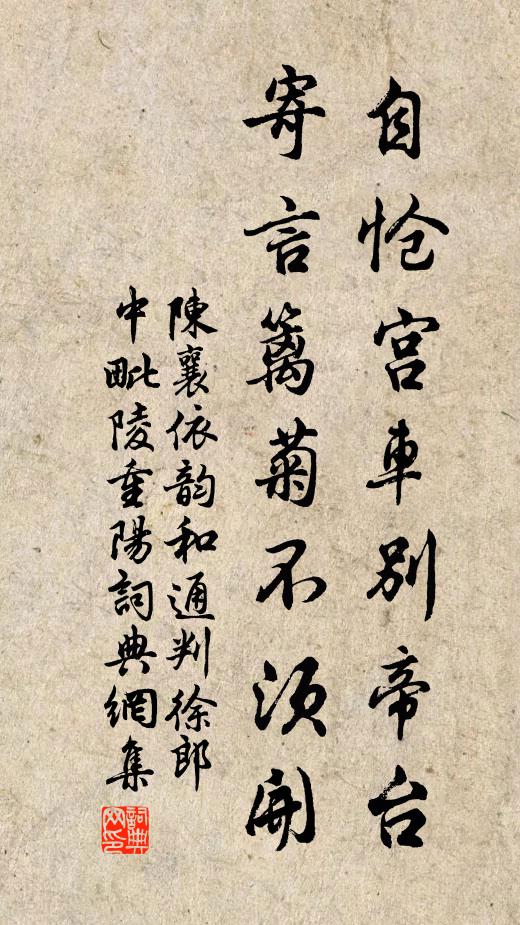 自怆宫車别帝台
寄言篱菊不须開
陳襄依韵和通判徐郎
中毗陵重陽詞典網集
詞典網印